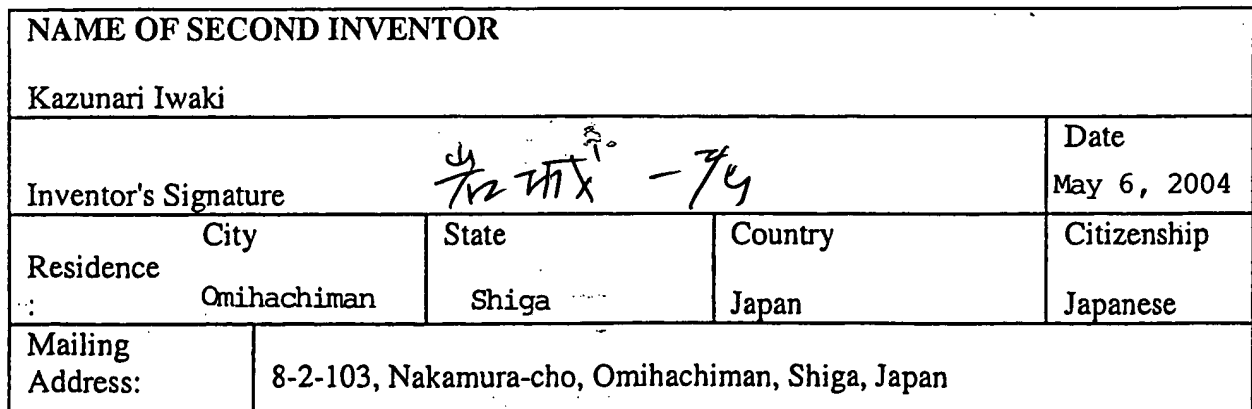 NAME OF SECOND INVENTOR
Kazunari Iwaki
Inventor's Signature 岩城 一 Date
May 6, 2004
Residence : City Omihachiman State Shiga Country Japan Citizenship Japanese
Mailing Address: 8-2-103, Nakamura-cho, Omihachiman, Shiga, Japan